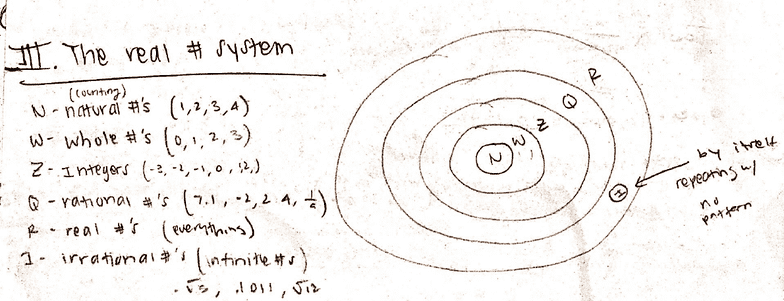 III. The real # system
(counting)
N - natural #'s (1,2,3,4)
W - whole #'s (0,1,2,3)
Z - Integers (-3,-2,-1,0,1,2,)
Q - rational #'s (7.1, -2, 2.4, 1/9)
R - real #'s (everything)
I - irrational #'s (infinite #s)
√3, .1011, √12
R
Q
Z
W
N
I
by itself
repeating w/
no
pattern